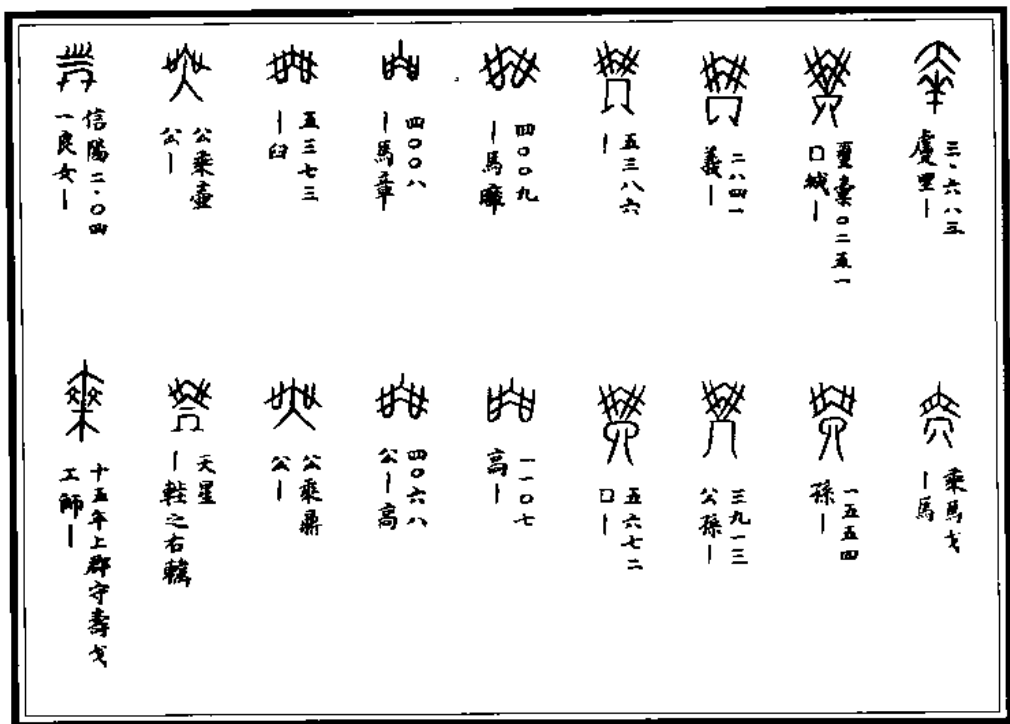 三·六八三
里—
璽彙〇二五一
口城—
二八四一
義—
五三八六
—
四〇〇九
—馬
四〇〇八
—馬章
五三七三
—臼
公乘壺
公—
信陽二·〇四
一良女—
乘馬戈
—馬
一五五四
孫—
三九一三
公孫—
五六七二
口—
一一〇七
高—
四〇六八
公—高
公乘鼎
公—
天星
—之右
十五年上郡守壽戈
工師—